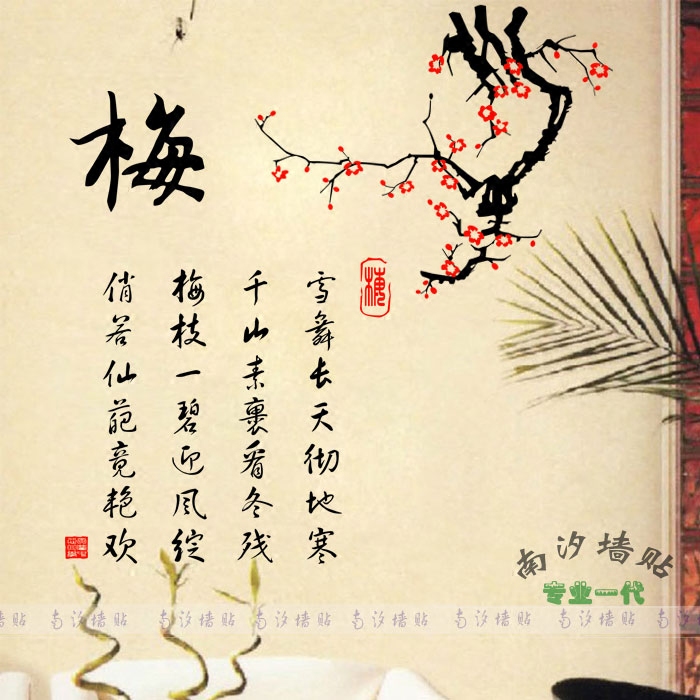 梅
雪舞长天彻地寒
千山素裹看冬残
梅枝一碧迎风绽
俏若仙葩竟艳欢
梅
南汐墙贴
专业一代
南汐墙贴 南汐墙贴 南汐墙贴 南汐墙贴 南汐墙贴